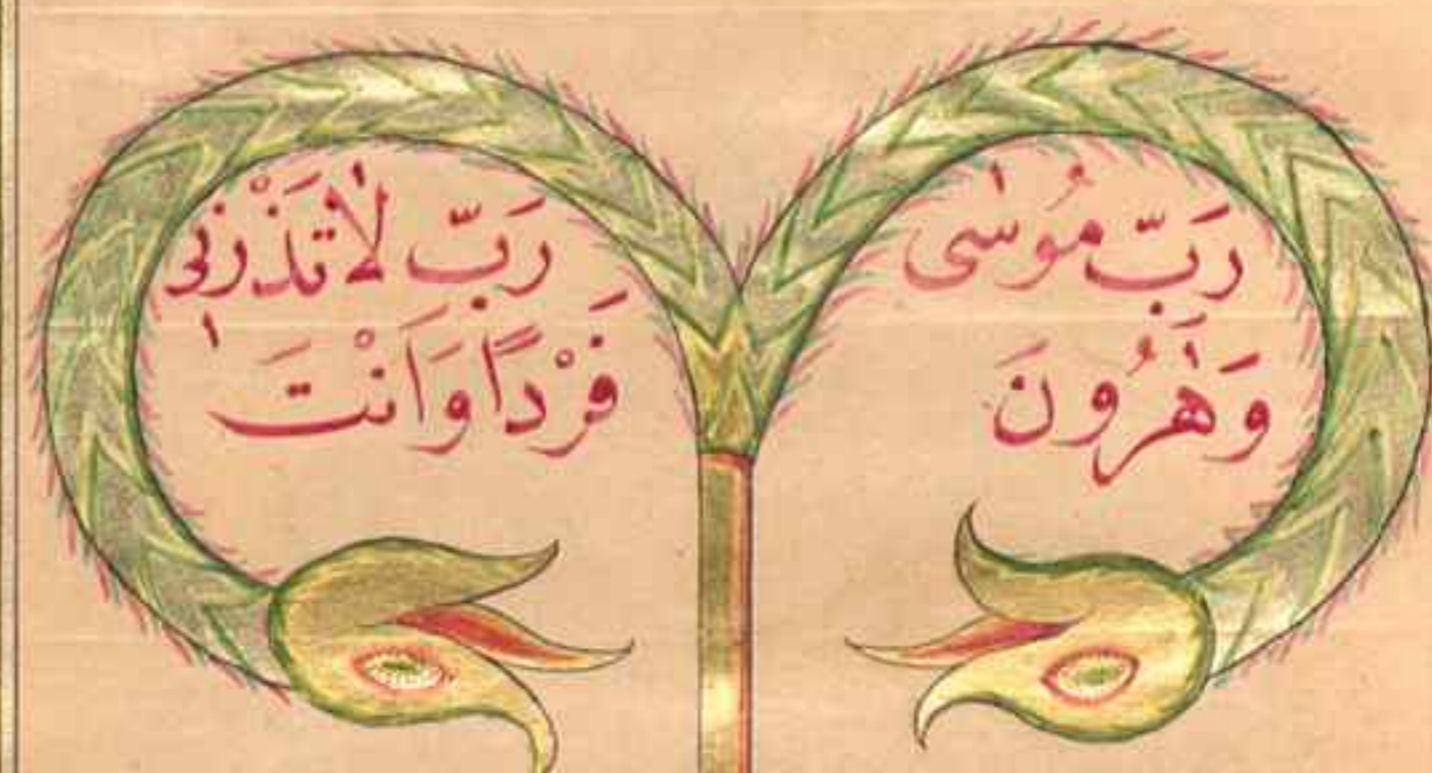 رَبِّ مُوسٰى
وَهٰرُونَ
رَبِّ لَا تَذَرْنٖى
فَرْدًا وَاَنْتَ